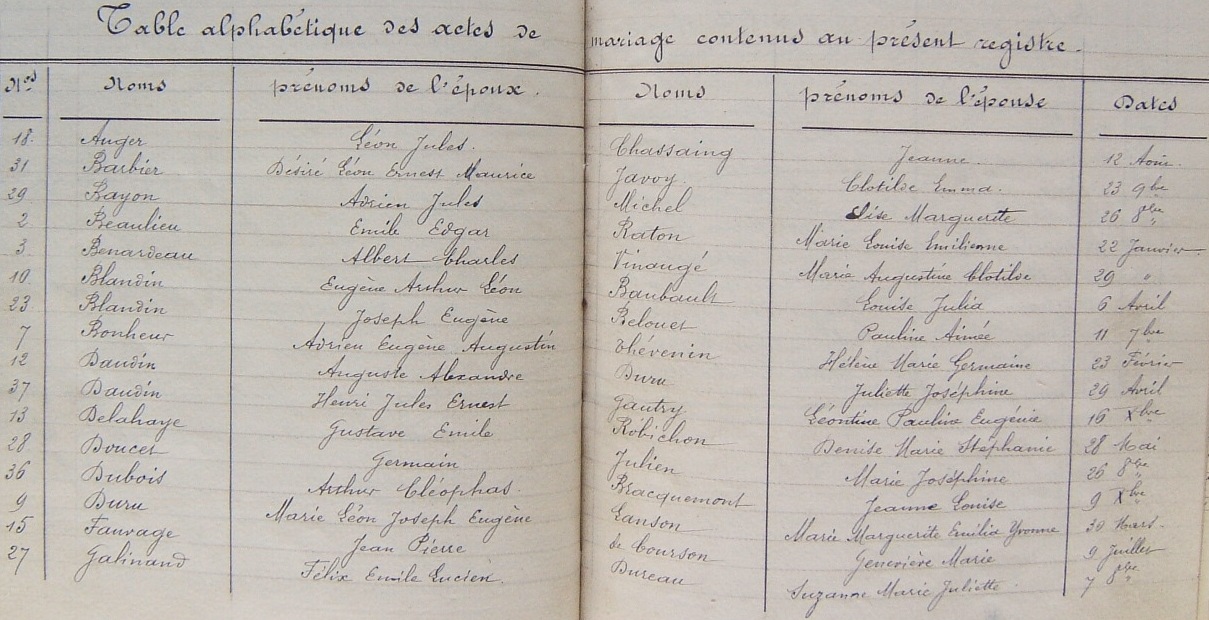 Table alphabétique des actes de mariage contenus au présent registre.
Nos Noms prénoms de l'époux. Noms prénoms de l'épouse Dates
18. Auger Léon Jules. Chassaing Jeanne. 12 Août.
31 Barbier Désiré Léon Ernest Maurice Javoy. Clotilde Emma. 23 9bre
29 Bayon Adrien Jules Michel Lise Marguerite 26 8bre
2 Beaulieu Emile Edgar Raton Marie Louise Emilienne 22 Janvier
3 Benardeau Albert Charles Vinaugé Marie Augustine Clotilde 29 "
10 Blandin Eugène Arthur Léon Baubault Louise Julia 6 Avril
23 Blandin Joseph Eugène Belouet Pauline Aimée 11 7bre
7 Bonheur Adrien Eugène Augustin Thévenin Hélène Marie Germaine 23 Février
12 Daudin Auguste Alexandre Duru Juliette Joséphine 29 Avril
37 Daudin Henri Jules Ernest Gautry Léontine Pauline Eugénie 16 Xbre
13 Delahaye Gustave Emile Robichon Denise Marie Stéphanie 28 Mai
28 Doucet Germain Julien Marie Joséphine 26 8bre
36 Dubois Arthur Cléophas. Bracquemont Jeanne Louise 9 Xbre
9 Duru Marie Léon Joseph Eugène Lanson Marie Marguerite Emilia Yvonne 30 Mars.
15 Fauvage Jean Pierre de Courson Geneviève Marie 9 Juillet
27 Galinand Félix Emile Lucien. Bureau Suzanne Marie Juliette 7 8bre